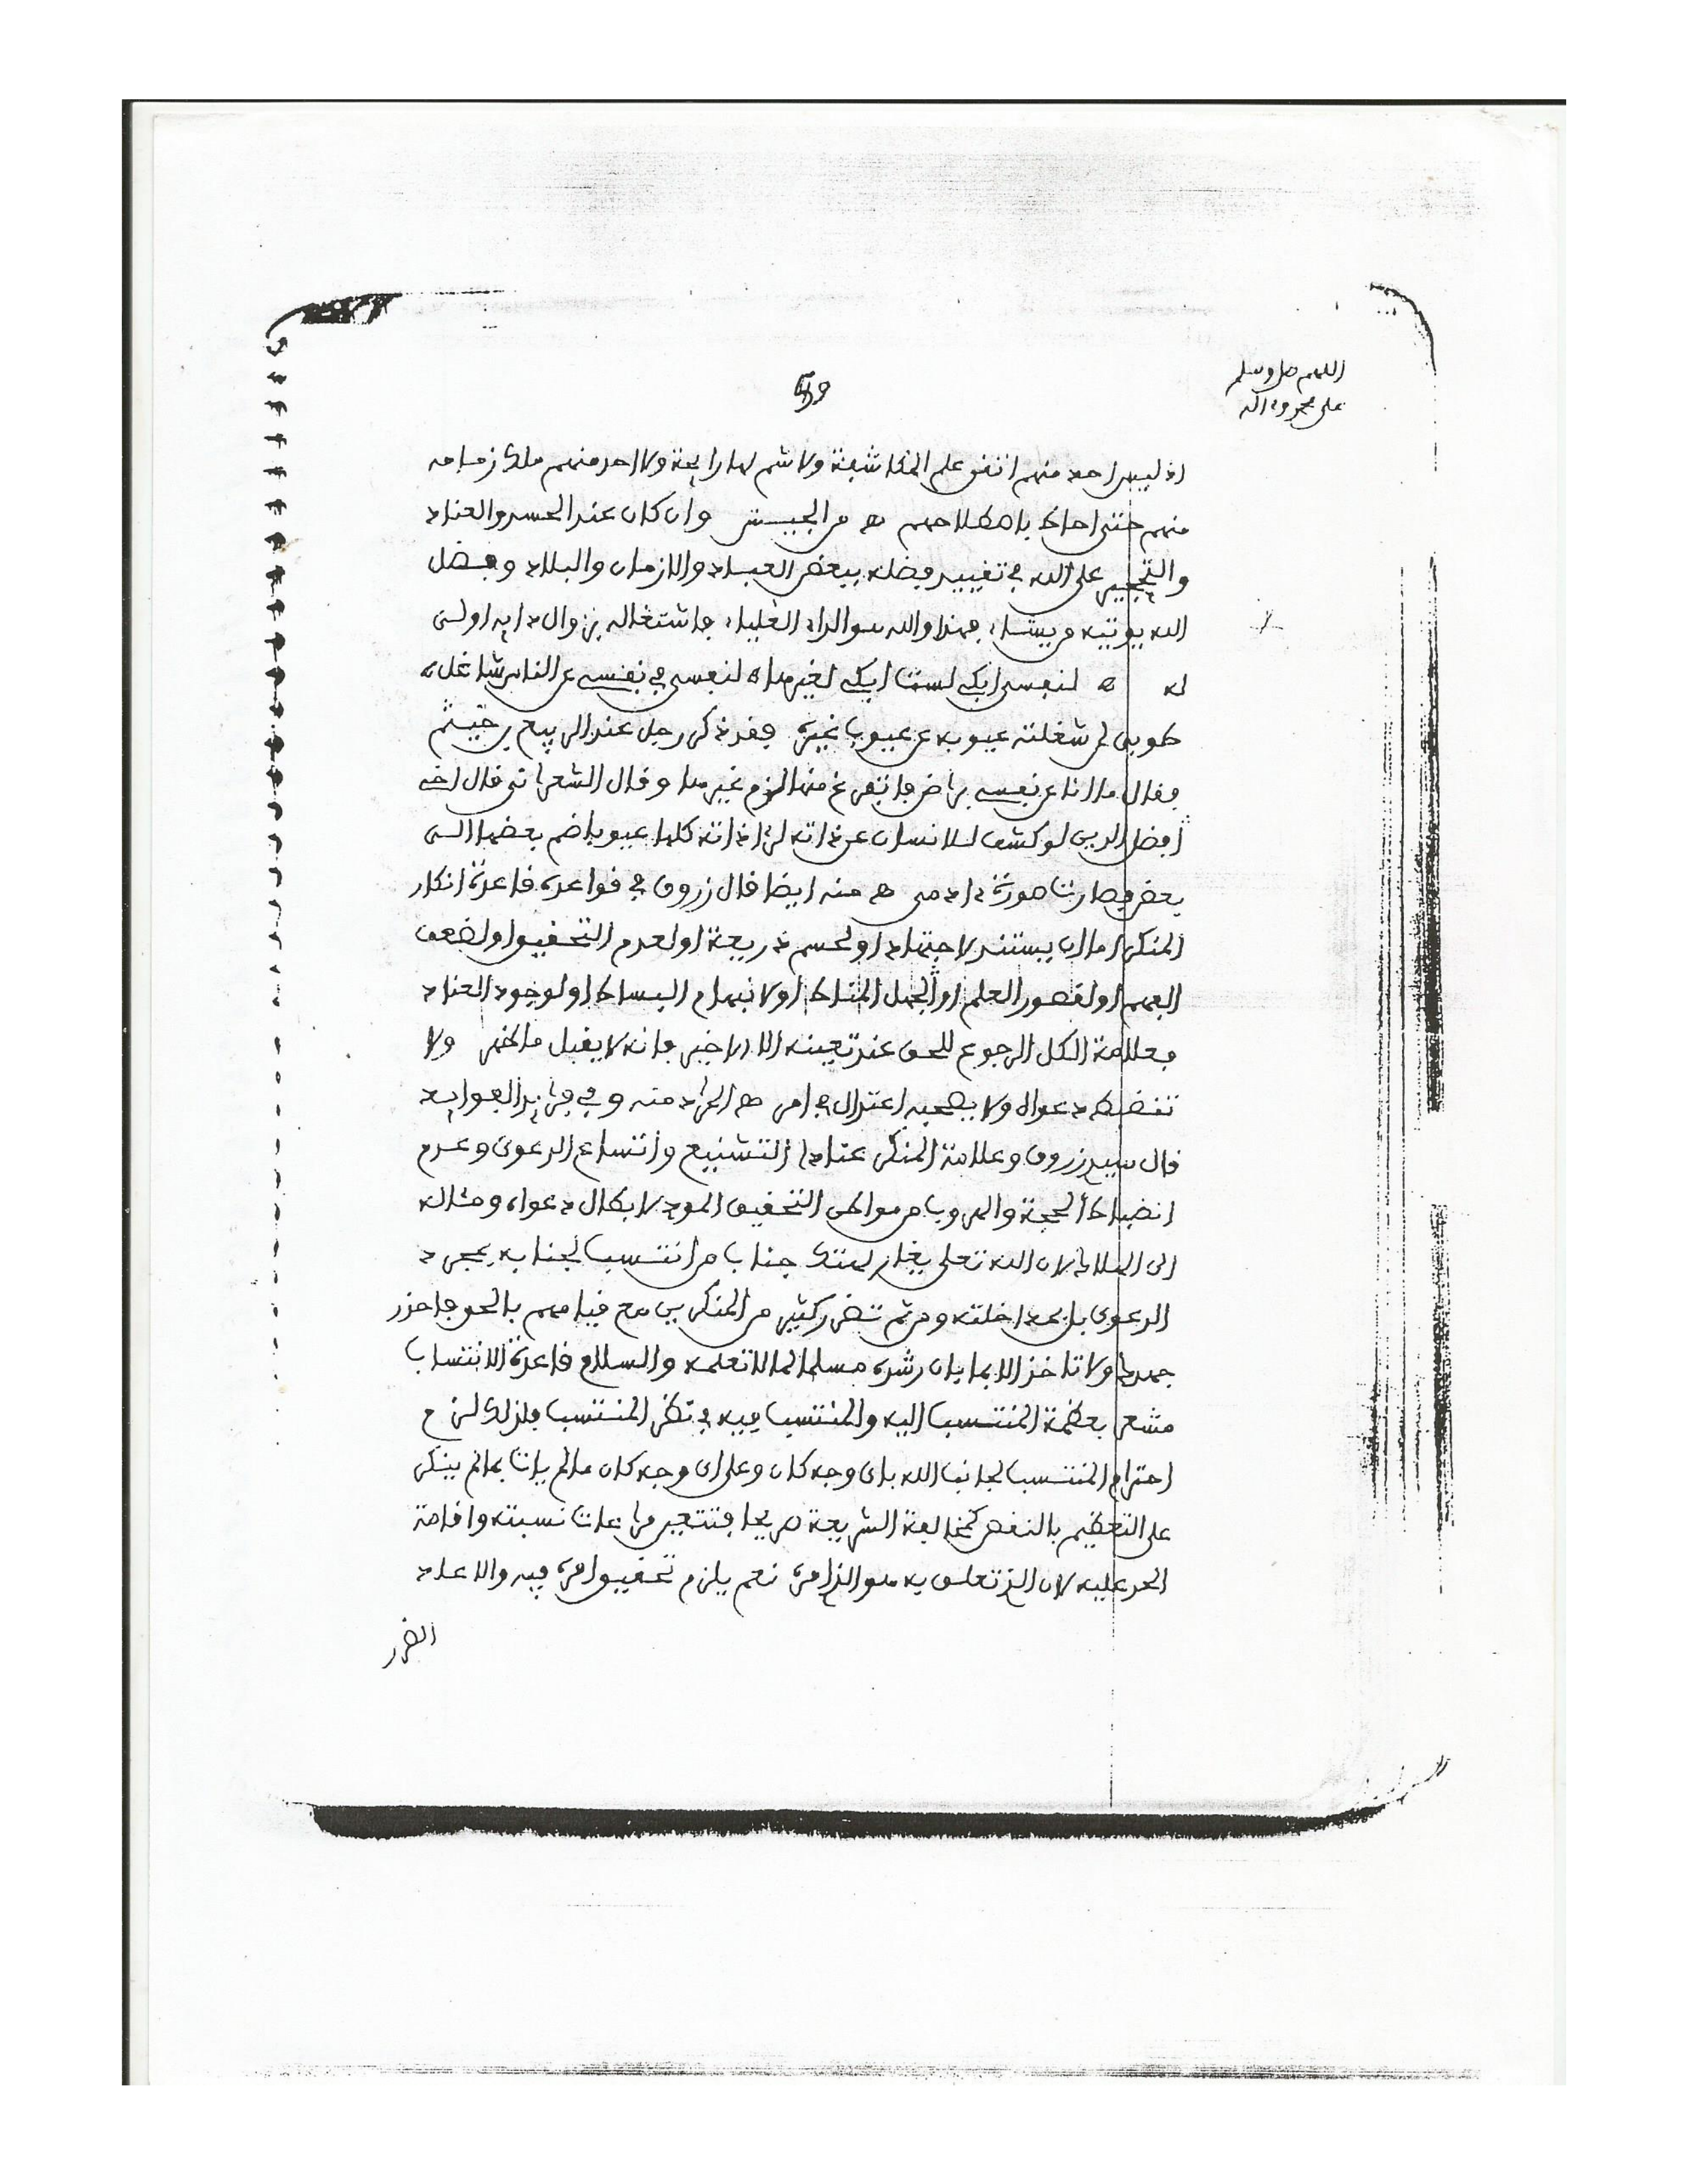 اللهم صل وسلم
على محمد وءاله
59
اذ ليس احد منهم اتقن علم المكاشفة ولا شم لها رايحة ولا احد منهم ملك زمامه
منهم حتى احاط باصطلاحهم ھ من الجيش وان كان عند الحسد والعناد
والتحجير على الله في تغيير فضله ببعض العباد والازمان والبلاد وفضل
الله يوتيه من يشاء فهذا والله هو الداء العليا، فاشتغاله بزوال دايه اولى
له ھ لنفسي ابكي لست ابكي لغيرها ه لنفسي في نفسي عن الناس شاغل ه
طوبى لمن شغلته عيوبه عن عيوب غيره فقد ذكر رجل عند الربيع بن خيثم
فقال ما انا عن نفسي براض فاتفرغ منها لذم غيرها وقال الشعراني قال اخي
افضل الدين لو كشف للانسان عن ذاته لرءا ذاته كلها عيوبا ضم بعضها الى
بعض فصارت صورة ءادمي ھ منه ايضا قال زروق في قواعده قاعدة انكار
المنكر اما ان يستند لاجتهاد او لحسم ذريعة او لعدم التحقيق او لضعف
الفهم او لقصور العلم او لجهل المناط او لانبهام البساط او لوجود العناد
فعلامة الكل الرجوع للحق عند تعينه الا الاخير فانه لا يقبل ما ظهر ولا
تنضبط دعواه ولا يصحبه اعتدال في امر ھ المراد منه وفي فرايد الفوايد
قال سيد زروق وعلامة المنكر عنادا التشنيع واتساع الدعوى وعدم
انضباط الحجة والهروب من مواطن التحقيق المود لابطال دعواه ومثاله
الى الهلاك لان الله تعلى يغار لهتك جناب من انتسب لجنابه بمجرد
الدعوى بل بمداخلته ومن ثم تضرر كثير من المنكرين مع قيامهم بالحق فاحذر
جهدك ولا تاخذ الا بما بان رشده مسلما لما لا تعلمه والسلام قاعدة الانتساب
مشعر بعظمة المنتسب اليه والمنتسب فيه في نظر المنتسب فلذلك لزم
احترام المنتسب لجانب الله باي وجه كان وعلى اي وجه كان ما لم يات بما لم ينكر
على التعظيم بالنقض كمخالفة الشريعة صريحا فتتعين مراعات نسبته واقامة
الحد عليه لان الذي تعلق به هو الذي امره نعم يلزم تحقيق امره فيه والا عاد
الضرر